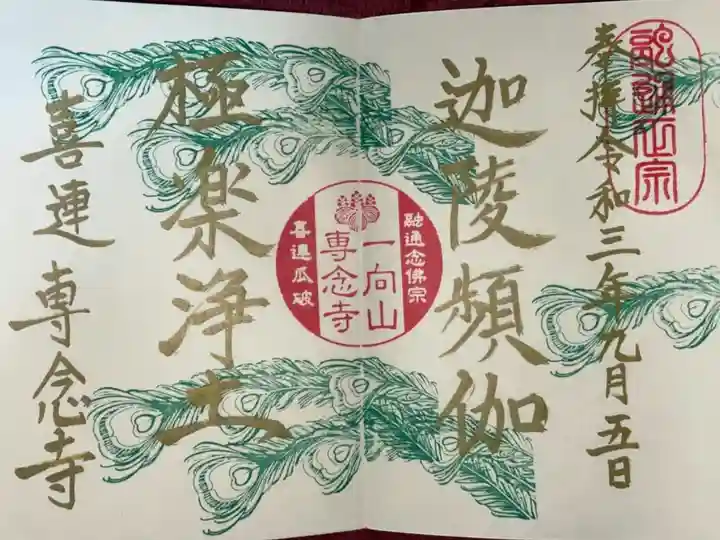 奉拝 令和三年九月五日
融通正宗
迦陵頻伽
融通念佛宗
一向山
専念寺
喜連瓜破
極楽浄土
喜連 専念寺